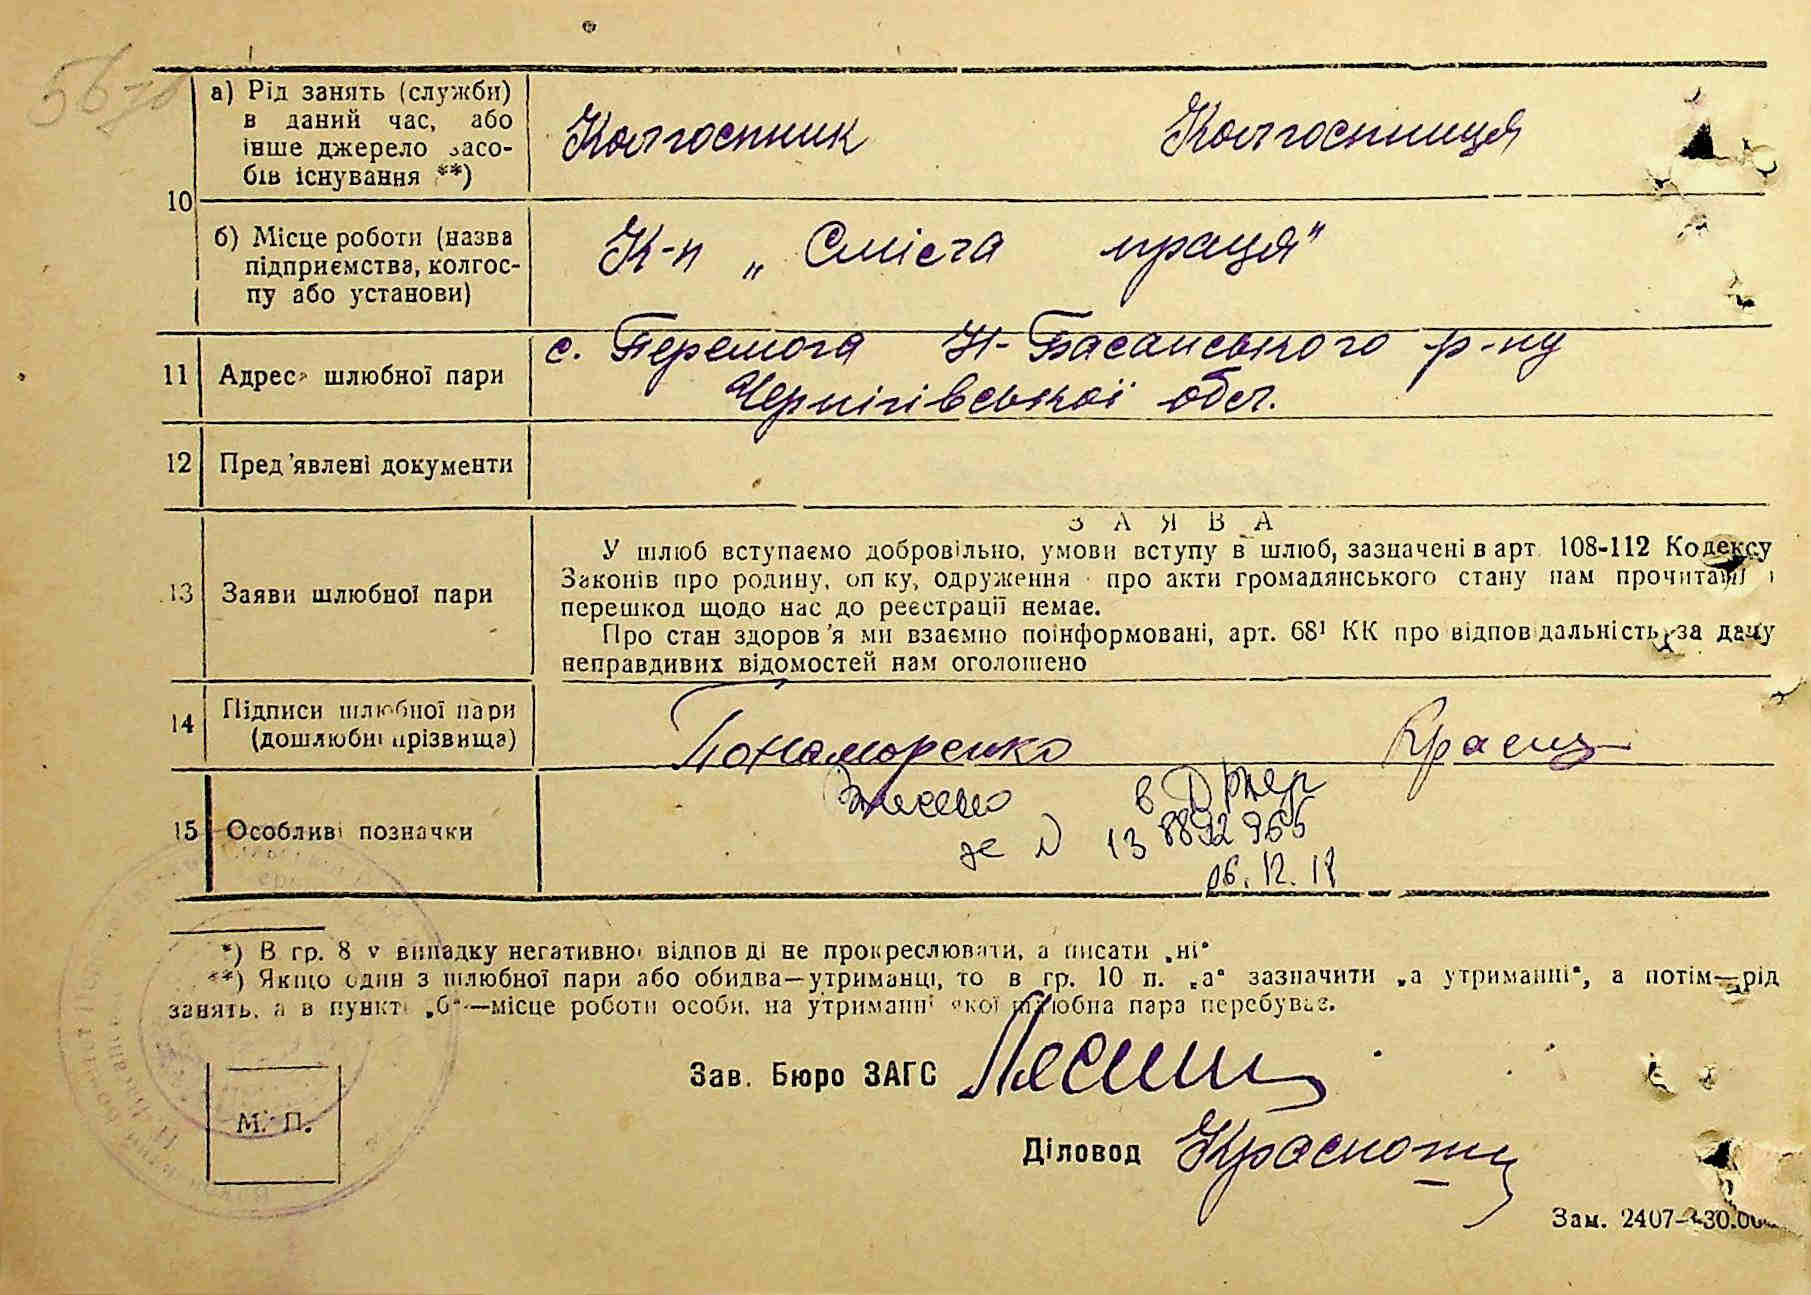 а) Рід занять (служби)
в даний час, або
інше джерело засо-
бів існування **)
Колгоспник Колгоспниця
10
б) Місце роботи (назва
підприємства, колгос-
пу або установи)
К-п „Смієга праця"
11 Адреса шлюбної пари
с. Перемога Н-Басанського р-ну
Чернігівської обл.
12 Пред'явлені документи
ЗАЯВА
13 Заяви шлюбної пари
У шлюб вступаємо добровільно, умови вступу в шлюб, зазначені в арт. 108-112 Кодексу
Законів про родину, опіку, одруження і про акти громадянського стану нам прочитані і
перешкод щодо нас до реєстрації немає.
Про стан здоров'я ми взаємно поінформовані, арт. 68¹ КК про відповідальність за дачу
неправдивих відомостей нам оголошено
14 Підписи шлюбної пари
(дошлюбні прізвища)
Понаморенко
15 Особливі позначки
Внесено в ДРАЦС
за N 13 8892 965
06.12.18
*) В гр. 8 у випадку негативної відповіді не прокреслювати, а писати „ні"
**) Якщо один з шлюбної пари або обидва—утриманці, то в гр. 10 п. „а" зазначити „а утриманні", а потім—рід
занять, а в пункті „б"—місце роботи особи, на утриманні якої шлюбна пара перебуває.
Зав. Бюро ЗАГС
Діловод
М. П.
Зам. 2407-